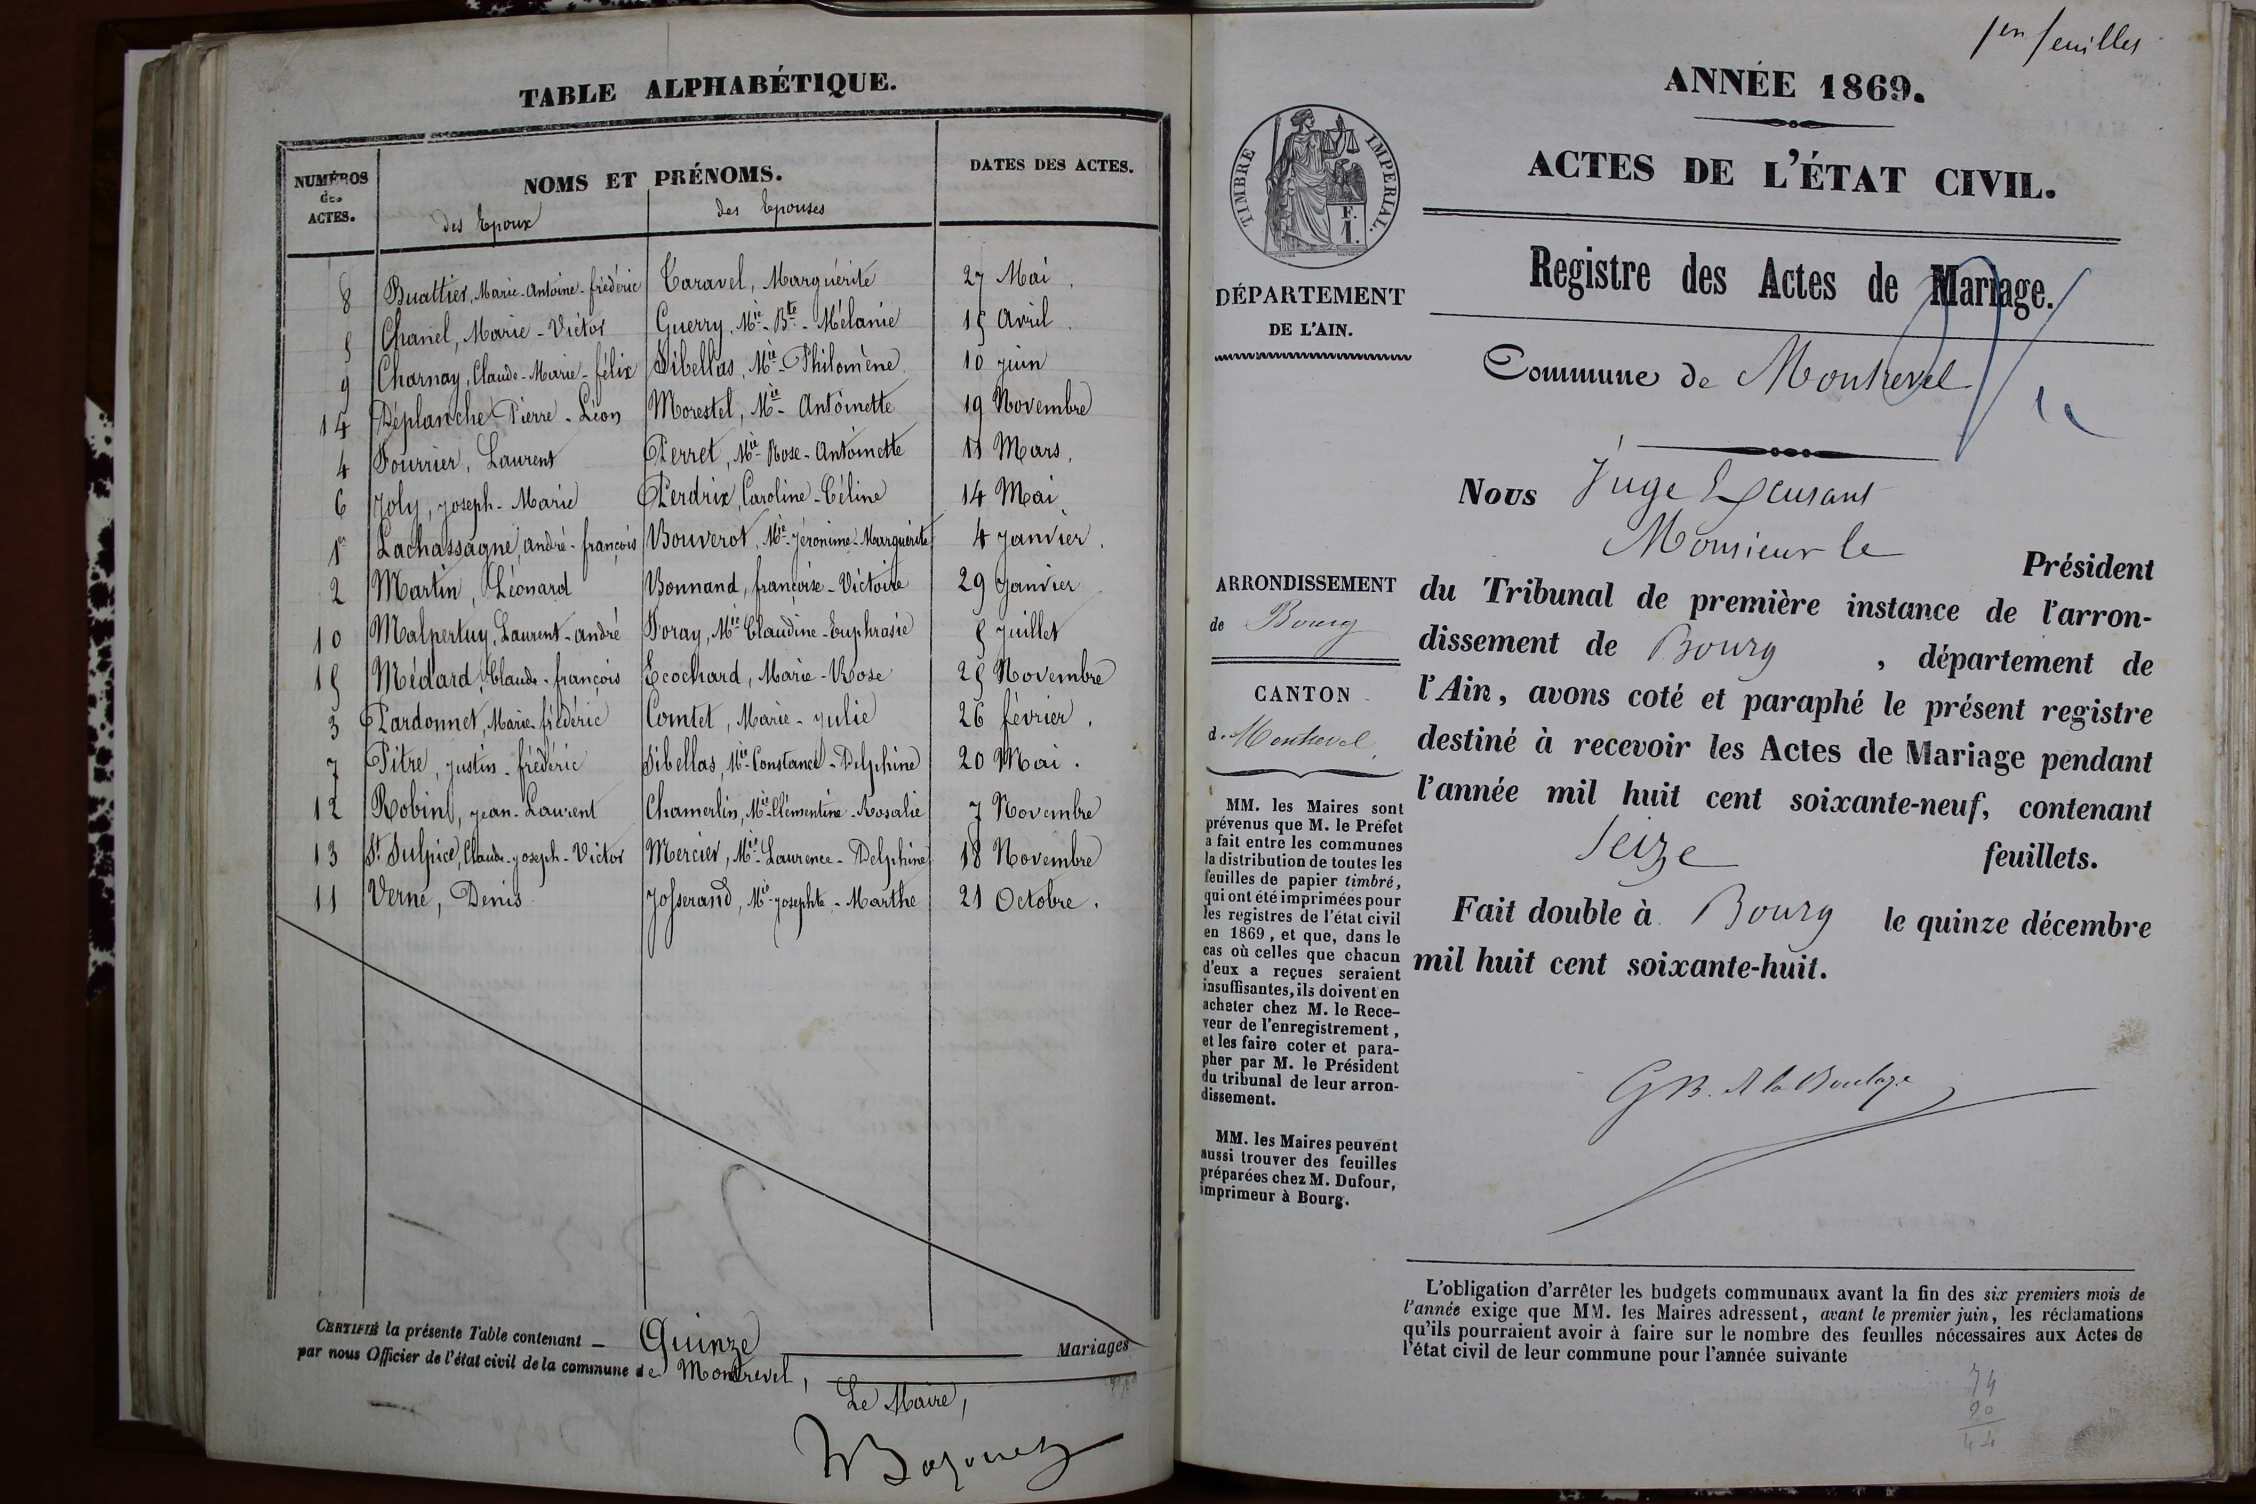 TABLE ALPHABÉTIQUE.
NUMÉROS
des
ACTES.
NOMS ET PRÉNOMS.
des Epoux
des Epouses
DATES DES ACTES.
8 Buattier, Marie-Antoine-frédéric Caravel, Marguérite 27 Mai.
5 Chanel, Marie-Victor Guerry, Mie-Bte-Mélanie 15 Avril.
9 Charnay, Claude-Marie-félix Sibellas, Mie-Philomène 10 juin
14 Déplanche Pierre-Léon Morestel, Mie-Antoinette 19 Novembre
4 Fourrier, Laurent Perret, Mie-Rose-Antoinette 11 Mars.
6 Joly, joseph-Marie Perdrix, Caroline-Céline 14 Mai
1er Lachassagne, andré-françois Bouverot, Mie-Jéronime-Marguérite 4 janvier.
2 Martin, Léonard Bonnand, françoise-Victoire 29 janvier
10 Malpertuy, Laurent-andré Foray, Mie-Claudine-Euphrasie 5 juillet
15 Médard, Claude-françois Ecochard, Marie-Rose 25 Novembre
3 Pardonnet, Marie-frédéric Comtet, Marie-julie 26 février.
7 Pitre, justin-frédéric Sibellas, Mie-Constance-Delphine 20 Mai.
12 Robin, jean-Laurent Chamerlin, Mie-Clémentine-Rosalie 7 Novembre
13 St Sulpice, Claude-joseph-Victor Mercier, Mie-Laurence-Delphine 18 Novembre
11 Verne, Denis Josserand, Mie-josephte-Marthe 21 Octobre.
CERTIFIÉ la présente Table contenant — Quinze Mariages
par nous Officier de l'état civil de la commune de Montrevel,
Le Maire,
feuilles
ANNÉE 1869.
ACTES DE L'ÉTAT CIVIL.
TIMBRE IMPERIAL.
F.
1.
Registre des Actes de Mariage.
DÉPARTEMENT
DE L'AIN.
Commune de Montrevel
Nous Juge Excusant
Monsieur le
Président
ARRONDISSEMENT
de Bourg
CANTON
de Montrevel
du Tribunal de première instance de l'arron-
dissement de Bourg, département de
l'Ain, avons coté et paraphé le présent registre
destiné à recevoir les Actes de Mariage pendant
l'année mil huit cent soixante-neuf, contenant
Seize feuillets.
Fait double à Bourg le quinze décembre
mil huit cent soixante-huit.
MM. les Maires sont
prévenus que M. le Préfet
a fait entre les communes
la distribution de toutes les
feuilles de papier timbré,
qui ont été imprimées pour
les registres de l'état civil
en 1869, et que, dans le
cas où celles que chacun
d'eux a reçues seraient
insuffisantes, ils doivent en
acheter chez M. le Rece-
veur de l'enregistrement,
et les faire coter et para-
pher par M. le Président
du tribunal de leur arron-
dissement.
MM. les Maires peuvent
aussi trouver des feuilles
préparées chez M. Dufour,
imprimeur à Bourg.
L'obligation d'arrêter les budgets communaux avant la fin des six premiers mois de
l'année exige que MM. les Maires adressent, avant le premier juin, les réclamations
qu'ils pourraient avoir à faire sur le nombre des feuilles nécessaires aux Actes de
l'état civil de leur commune pour l'année suivante